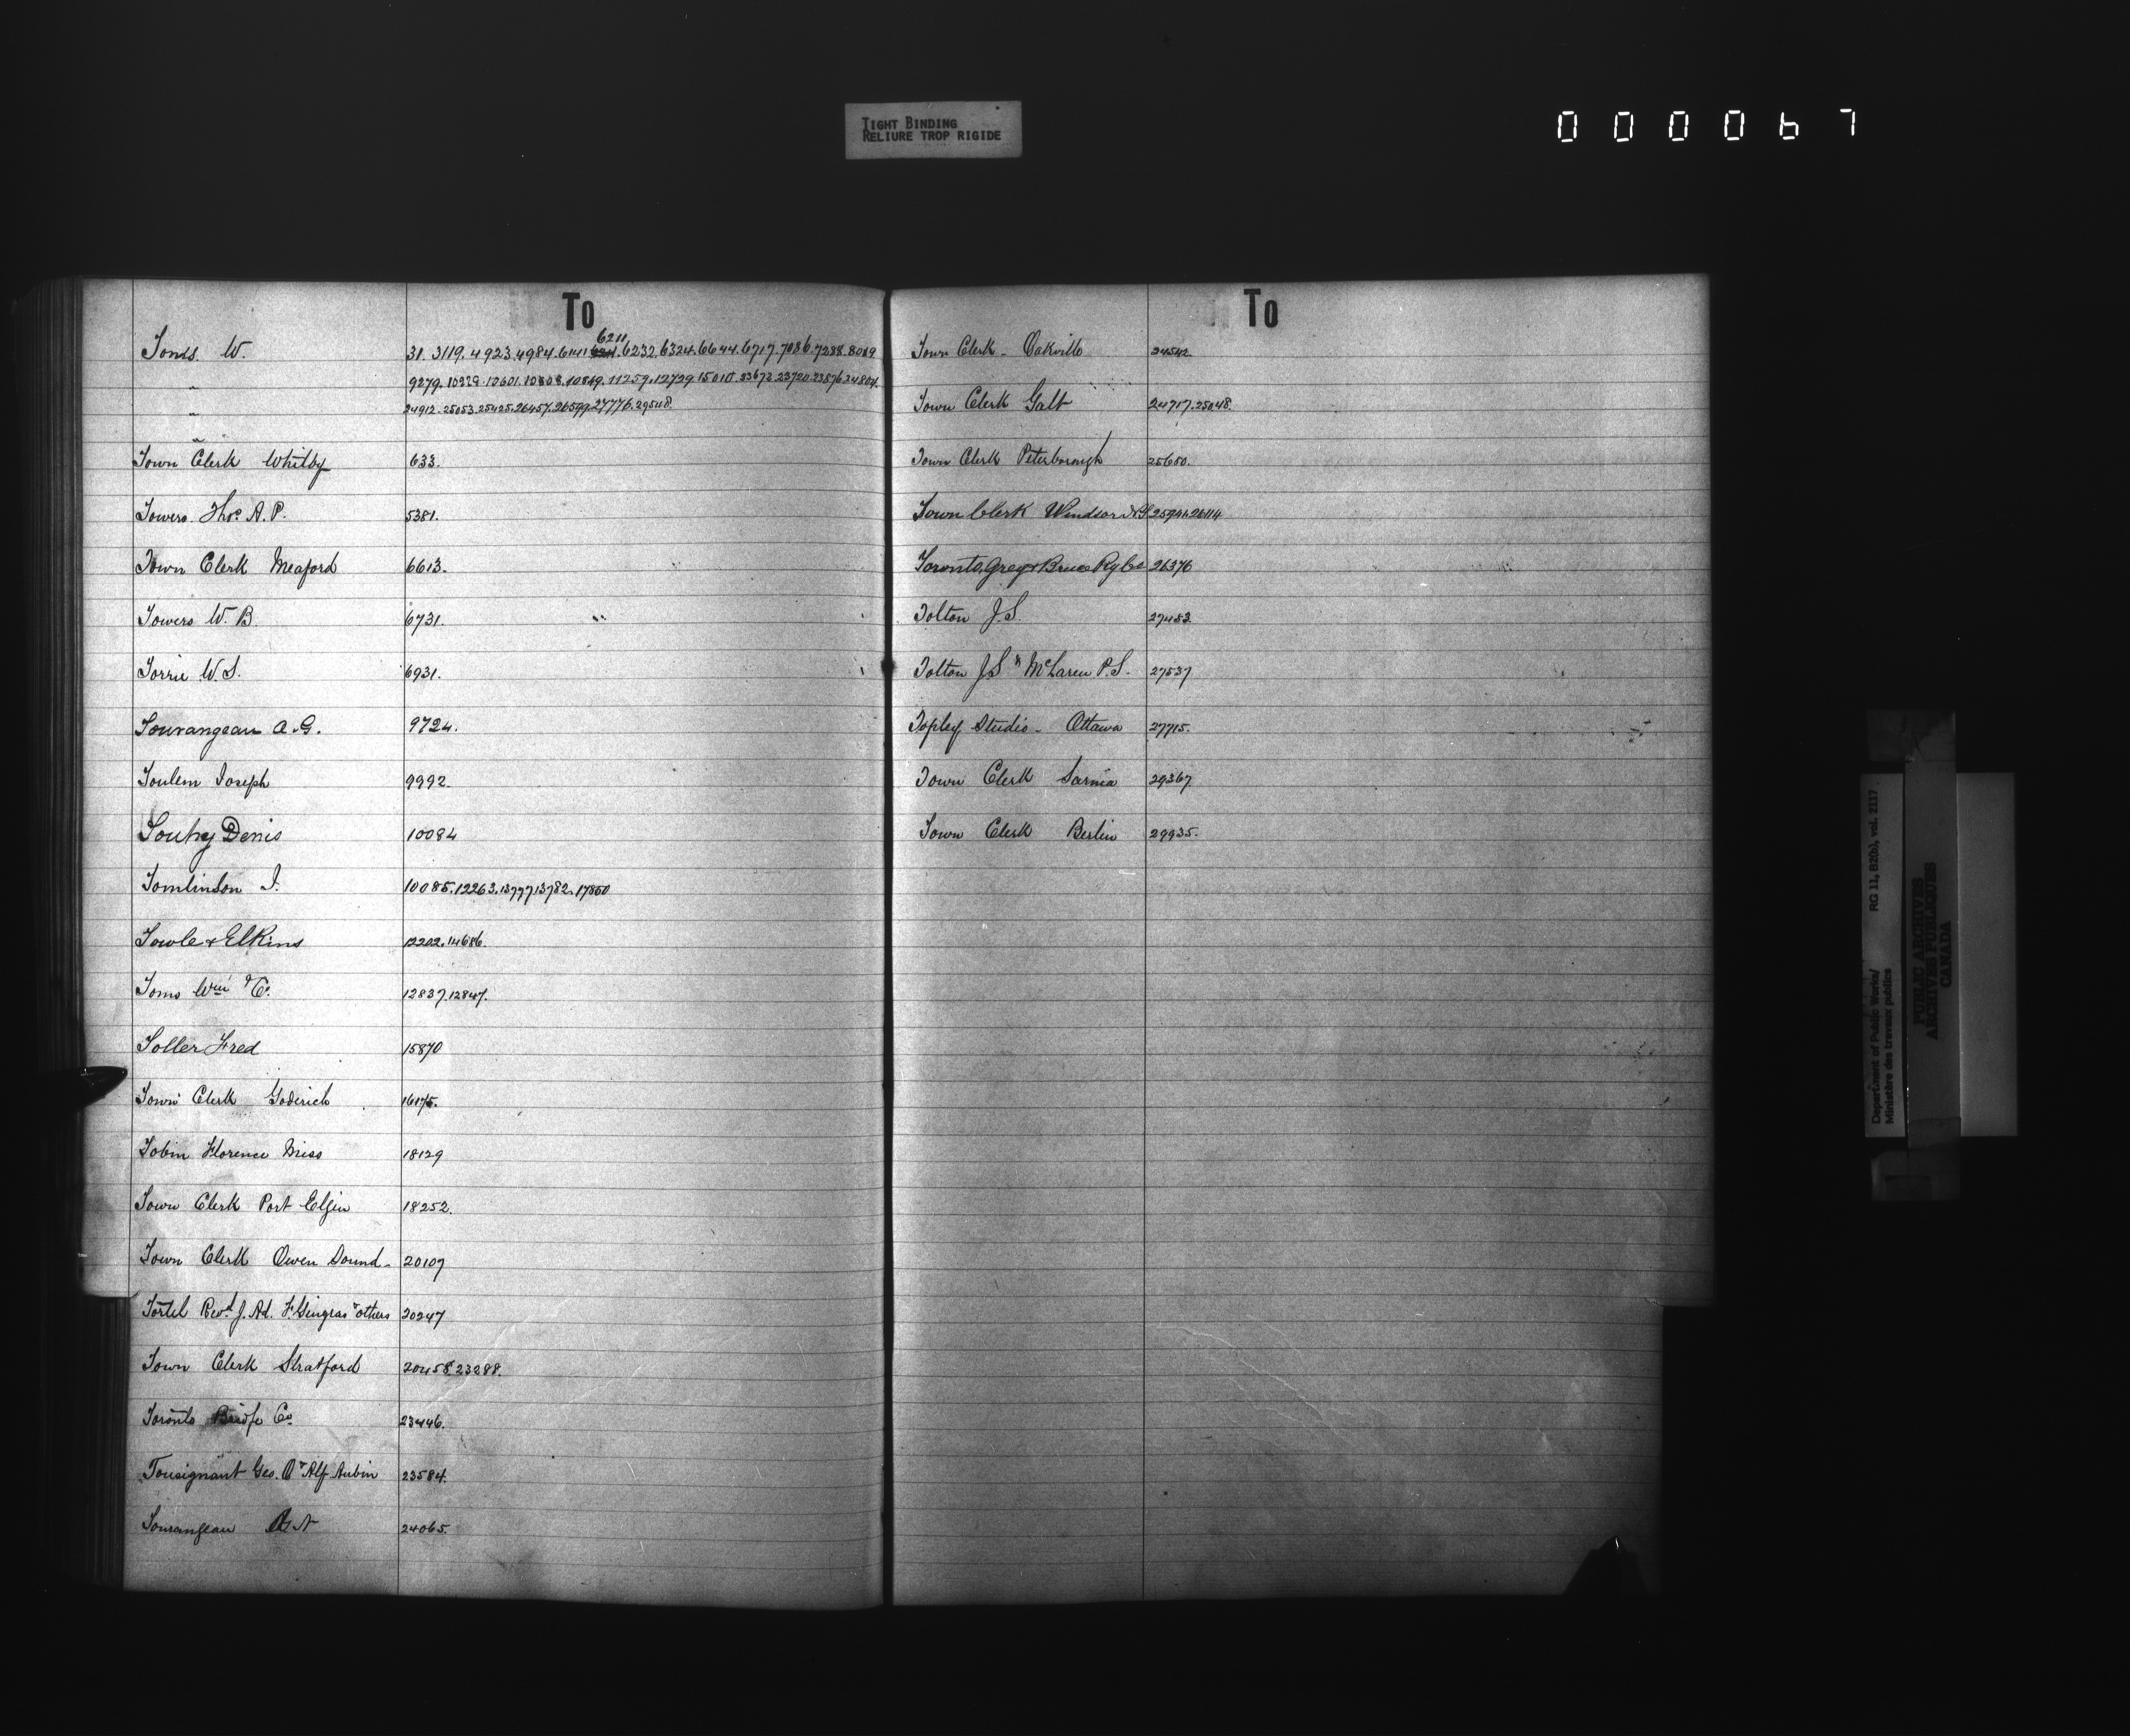 TIGHT BINDING
RELIURE TROP RIGIDE
000067
To
Toms. W. 31. 3119. 4923. 4984. 6141. 6211. 6232. 6324. 6644. 6717. 7086. 7238. 8019
" 9279. 10229. 10601. 10808. 10849. 11259. 12729. 15010. 23672. 23720. 23876. 24804.
" 24912. 25053. 25425. 26457. 26599. 27776. 29548.
Town Clerk Whitby 633.
Towers. Thos A. P. 5381.
Town Clerk Meaford 6613.
Towers W. B. 6731.
Torrie W. S. 6931.
Tourangeau A. G. 9724.
Toulem Joseph 9992.
Touhy Denis 10084
Tomlinson J. 10085. 12263. 13777. 13782. 17850
Towle & Elkins 12202. 14686.
Toms Wm & Co. 12837. 12847.
Toller Fred 15870
Town Clerk Goderich 16175.
Tobin Florence Miss 18129
Town Clerk Port Elgin 18252.
Town Clerk Owen Sound - 20109
Tortel Revd. J. Ad. F. Gingras & others 20247
Town Clerk Stratford 20458. 23288.
Toronto Bridge Co. 23446.
Tousignant Geo. O & Alf Aubin 23584.
Tourangeau 24065.
To
Town Clerk - Oakville 24542.
Town Clerk Galt 24717. 25048.
Town Clerk Peterborough 25680.
Town Clerk Windsor N.S. 25941. 26114
Toronto, Grey & Bruce Ry Co 26376
Tolton J. S. 27483.
Tolton J S & McLaren P. S. 27537
Topley Studio - Ottawa 27715.
Town Clerk Sarnia 29367.
Town Clerk Berlin 29935.
Department of Public Works/ RG 11, B2(b), vol. 2117
Ministère des travaux publics
PUBLIC ARCHIVES
ARCHIVES PUBLIQUES
CANADA